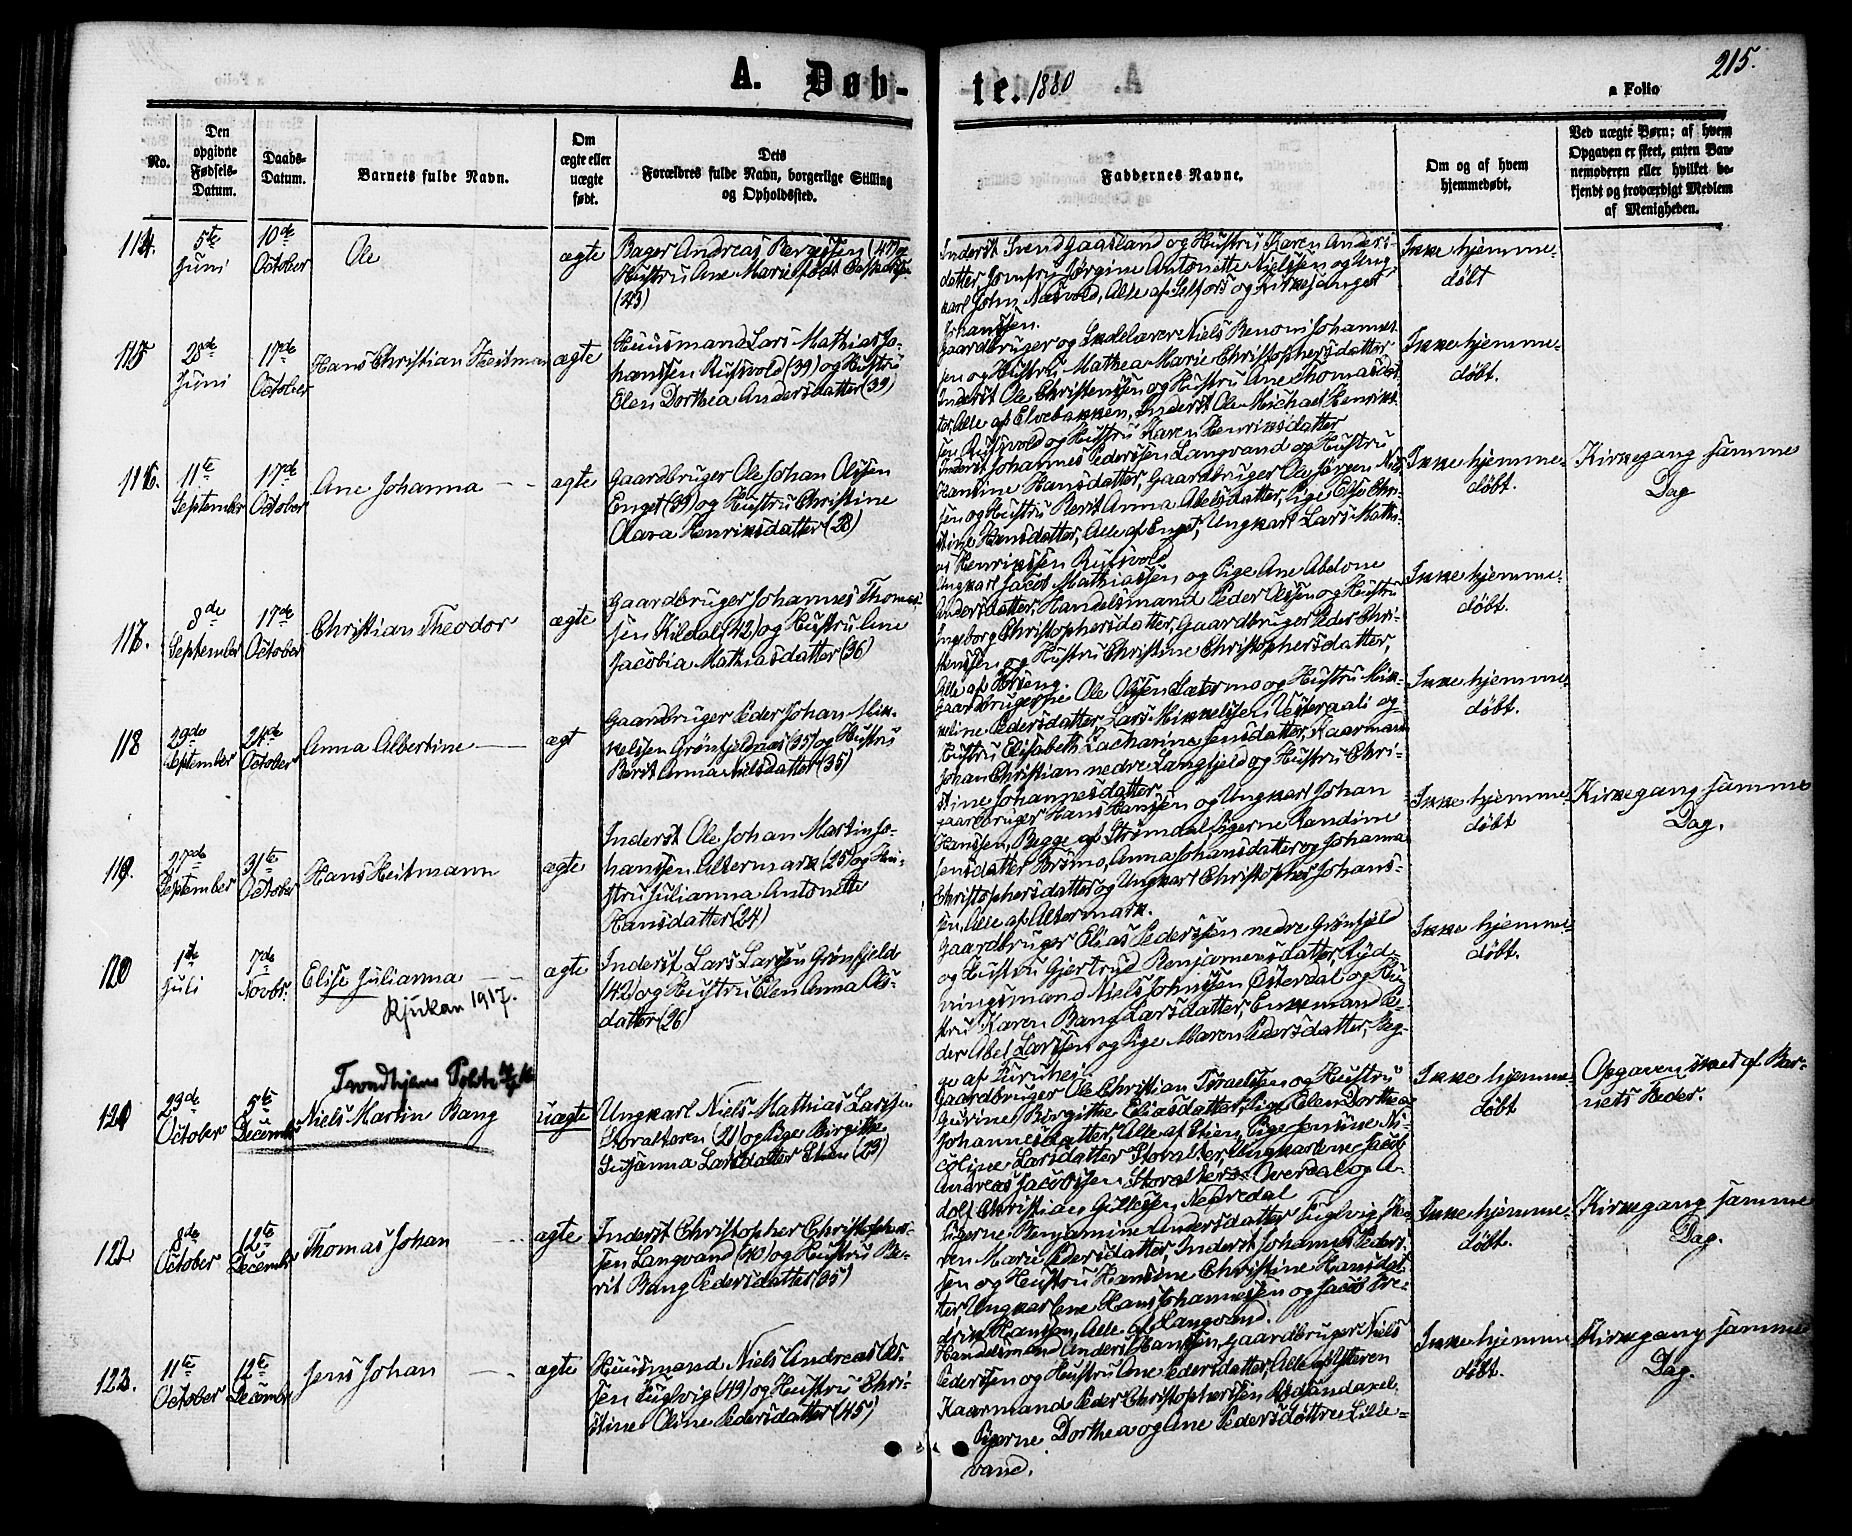 A. Døb-
te. 1880
215.
a Folio
No.
Den opgivne Fødsels-Datum.
Daabs-Datum.
Barnets fulde Navn.
Om ægte eller uægte født.
Dets Forældres fulde Navn, borgerlige Stilling og Opholdssted.
Faddernes Navne.
Om og af hvem hjemmedøbt.
Ved uægte Børn; af hvem Opgaven er skeet, enten Barnemoderen eller hvilket bekjendt og troværdigt Medlem af Menigheden.
114.
5te Juni
10de October
Ole
ægte
Bager Andreas Bergersen (47) og
Hustru Ane Marie født
(43)
Inderst Svend Gaasland og Hustru Karen Anders-
datter, Jomfru Jørgine Antonette Nielssen og Ung-
karl John Næsvold, Alle af Selfors og Kirkesanger
Johanssen.
Ikke hjemme-
døbt
115
28de Juni
17de October
Hans Christian Heitman
ægte
Huusmand Lars Mathias Jo-
hanssen Rufsvold (39) og Hustru
Elen Dorthea Andersdatter (39)
Gaardbruger og Skolelærer Niels Benoni Johannes-
sen og Hustru Mathea Marie Christophersdatter,
Inderst Ole Christenssen og Hustru Ane Thomasdat-
ter, Alle af Elvebakken, Inderst Ole Michael Henrik-
sen Rufsvold og Hustru Karen Henriksdatter
Ikke hjemme-
døbt.
116.
11te September
17de October
Ane Johanna
ægte
Gaardbruger Ole Johan Olssen
Enget (39) og Hustru Christine
Olava Henriksdatter (28)
Inderst Johannes Pederssen Langvand og Hustru
Hansine Hansdatter, Gaardbruger Ole Jørgen Niel-
sen og Hustru Berit Anna Abelsdatter, Pige Else Chri-
stine Hansdatter, Alle af Enget, Ungkarl Lars Mathi-
as Henrikssen Rufsvold
Ikke hjemme-
døbt.
Kirkegang samme
Dag
117.
8de September
17de October
Christian Theodor
ægte
Gaardbruger Johannes Thomas-
sen Kildal (42) og Hustru Ane
Jacobia Mathiasdatter (36)
Ungkarl Jacob Mathiassen og Pige Ane Abelone
Andersdatter, Handelsmand Peder Olssen og Hustru
Ingeborg Christophersdatter, Gaardbruger Peder Chri-
stenssen og Hustru Christine Christophersdatter,
Alle af
Ikke hjemme-
døbt.
118
29de September
24de October
Anna Albertine
ægt
Gaardbruger Peder Johan Mik-
kelssen Grønfjeldnæs (35) og Hustru
Berit Anna Nielsdatter (35)
Gaardbrugerne Ole Olssen Sætermo og Hustru Mik-
keline Pedersdatter, Lars Mikkelssen Vesteraali og
Hustru Elisabeth Zacharina Jensdatter, Kaarmand
Johan Christian nedre Langfjeld og Hustru Chri-
stine Johannesdatter
Ikke hjemme-
døbt.
119.
27de September
31te October
Hans Heitmann
ægte
Inderst Ole Johan Martin Jo-
hanssen Altermark (25) og Hu-
stru Julianna Antonette
Hansdatter (24)
Gaardbruger Hans Hanssen og Ungkarl Johan
Hanssen, Begge af Strømdal, Pigerne Randine
Jensdatter Forsmo, Anna Johansdatter og Johanna
Christophersdatter og Ungkarl Christopher Johans-
sen, Alle af Altermark.
Ikke hjemme-
døbt
Kirkegang samme
Dag.
120
1ste Juli
7de Novbr.
Elise Julianna
Rjukan 1917.
ægte
Inderst Lars Larssen Grønfjeld
(42) og Hustru Elen Anna Ols-
datter (26)
Gaardbruger Elias Pederssen nedre Grønfjeld
og Hustru Gjertrud Benjaminsdatter, Ryd-
ningsmand Niels Johnssen Østerdal og Hu-
stru Karen Bang Larsdatter, Enkemand Pe-
der Abel Larssen og Pige Maren Pedersdatter, Beg-
ge af Furuhei
Ikke hjemme-
døbt.
Trondhjems
121
23de October
5te December
Niels Martin Bang
uægte
Ungkarl Niels Mathias Larssen
Storalteren (21) og Pige Birgithe
Susanna Larsdatter Stien (23)
Gaardbruger Ole Christian Israelssen og Hustru
Gurine Birgithe Eliasdatter, Pige Elen Dorthea
Johannesdatter, Alle af Stien, Pige Jensine Ni-
coline Larsdatter Storalteren, Ungkarlene Jacob
Andreas Jacobssen Storalteren Overdal og A-
dolf Christian Nedredal
Ikke hjemme-
døbt
Opgaven skeet af Bar-
nets Fader.
122
8de October
12te December
Thomas Johan
ægte
Inderst Christopher Christopher-
sen Langvand (40) og Hustru Be-
rit Bang Pedersdatter (35)
Pigerne Benjamine Andersdatter Fuglvig, Ka-
ren Marie Pedersdatter, Inderst Johannes Peders-
sen og Hustru Hansine Christine Hansdat-
ter, Ungkarlene Hans Johannessen og Jacob Fre-
drik Hanssen, Alle af Langvand.
Ikke hjemme-
døbt.
Kirkegang samme
Dag.
123.
11te October
12te December
Jens Johan
ægte
Huusmand Niels Andreas Ols-
sen Fuglvig (49) og Hustru Chri-
stine Oline Pedersdatter (45)
Handelsmand Anders Hanssen, Gaardbruger Niels
Pederssen og Hustru Ane Pedersdatter, Alle af Ytteren
Kaarmand Peder Christopherssen Rødsandaxel,
Pigerne Dorthea og Ane Pedersdøttre Lille-
vand.
Ikke hjemme
døbt.
Kirkegang samme
Dag.